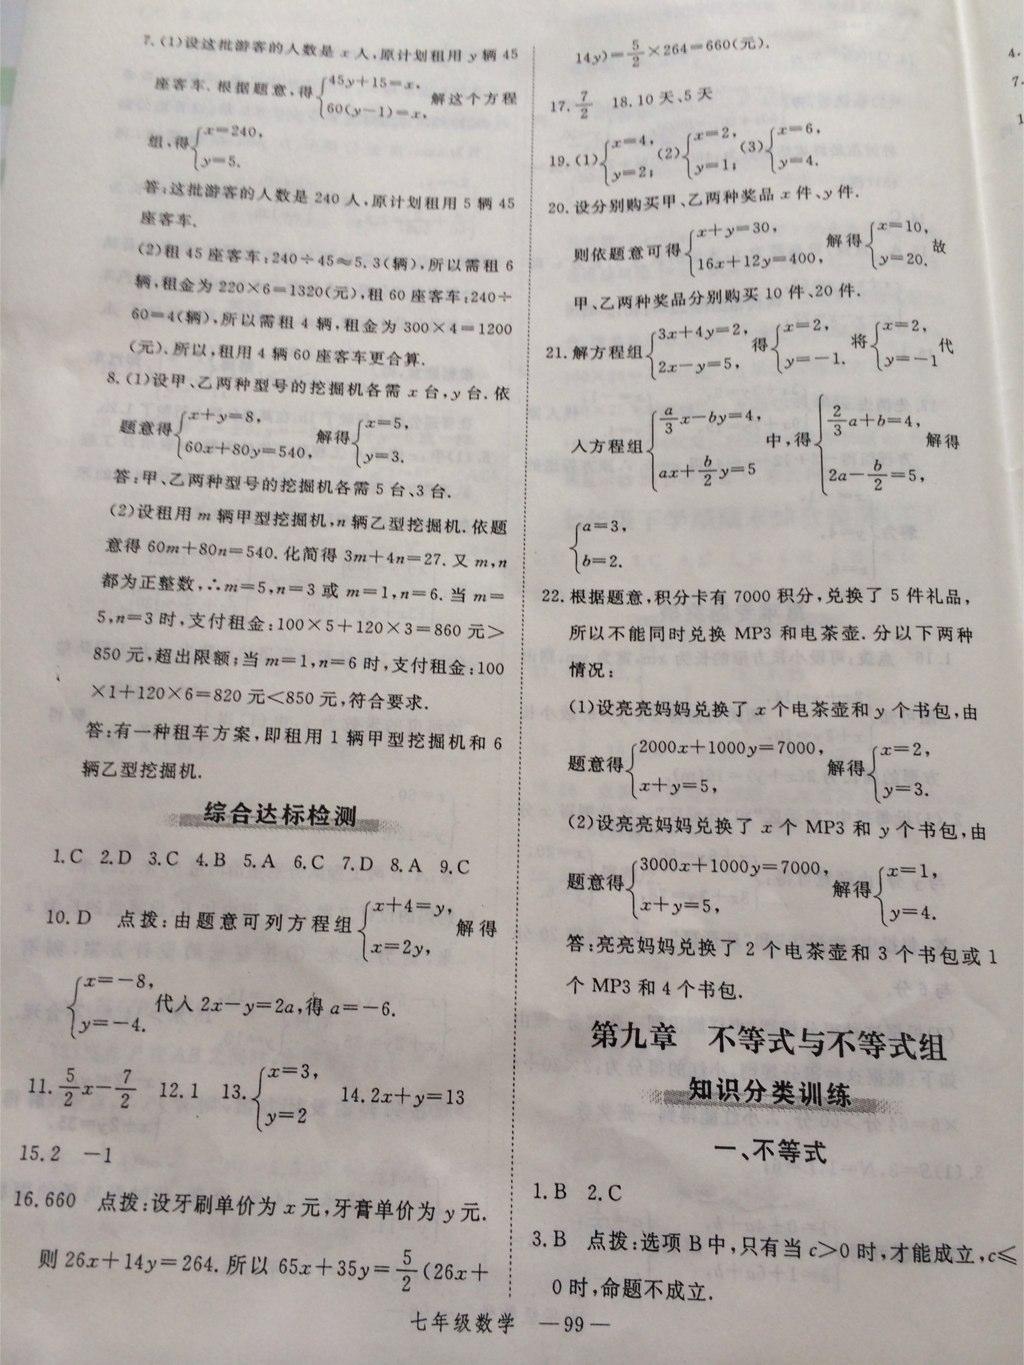 7.(1)设这批游客的人数是 x 人,原计划租用 y 辆 45
座客车.根据题意,得{45y+15=x, 60(y-1)=x, 解这个方程
组,得{x=240, y=5.
答:这批游客的人数是 240 人,原计划租用 5 辆 45
座客车.
(2)租 45 座客车:240÷45≈5.3(辆),所以需租 6
辆,租金为 220×6=1320(元),租 60 座客车:240÷
60=4(辆),所以需租 4 辆,租金为 300×4=1200
(元).所以,租用 4 辆 60 座客车更合算.
8.(1)设甲、乙两种型号的挖掘机各需 x 台,y 台.依
题意得{x+y=8, 60x+80y=540, 解得{x=5, y=3.
答:甲、乙两种型号的挖掘机各需 5 台、3 台.
(2)设租用 m 辆甲型挖掘机,n 辆乙型挖掘机.依题
意得 60m+80n=540.化简得 3m+4n=27.又 m,n
都为正整数,∴m=5,n=3 或 m=1,n=6.当 m=
5,n=3 时,支付租金:100×5+120×3=860 元>
850 元,超出限额;当 m=1,n=6 时,支付租金:100
×1+120×6=820 元<850 元,符合要求.
答:有一种租车方案,即租用 1 辆甲型挖掘机和 6
辆乙型挖掘机.
综合达标检测
1.C 2.D 3.C 4.B 5.A 6.C 7.D 8.A 9.C
10.D 点拨:由题意可列方程组{x+4=y, x=2y, 解得
{x=-8, y=-4. 代入 2x-y=2a,得 a=-6.
11.5/2x-7/2 12.1 13.{x=3, y=2 14.2x+y=13
15.2 -1
16.660 点拨:设牙刷单价为 x 元,牙膏单价为 y 元.
则 26x+14y=264.所以 65x+35y=5/2(26x+
14y)=5/2×264=660(元).
17.7/2 18.10 天、5 天
19.(1){x=4, y=2; (2){x=2, y=1; (3){x=6, y=4.
20.设分别购买甲、乙两种奖品 x 件、y 件.
则依题意可得{x+y=30, 16x+12y=400, 解得{x=10, y=20. 故
甲、乙两种奖品分别购买 10 件、20 件.
21.解方程组{3x+4y=2, 2x-y=5, 得{x=2, y=-1. 将{x=2, y=-1 代
入方程组{a/3x-by=4, ax+b/2y=5 中,得{2/3a+b=4, 2a-b/2=5, 解得
{a=3, b=2.
22.根据题意,积分卡有 7000 积分,兑换了 5 件礼品,
所以不能同时兑换 MP3 和电茶壶.分以下两种
情况:
(1)设亮亮妈妈兑换了 x 个电茶壶和 y 个书包,由
题意得{2000x+1000y=7000, x+y=5, 解得{x=2, y=3.
(2)设亮亮妈妈兑换了 x 个 MP3 和 y 个书包,由
题意得{3000x+1000y=7000, x+y=5, 解得{x=1, y=4.
答:亮亮妈妈兑换了 2 个电茶壶和 3 个书包或 1
个 MP3 和 4 个书包.
第九章 不等式与不等式组
知识分类训练
一、不等式
1.B 2.C
3.B 点拨:选项 B 中,只有当 c>0 时,才能成立,c≤
0 时,命题不成立.
七年级数学 —99—